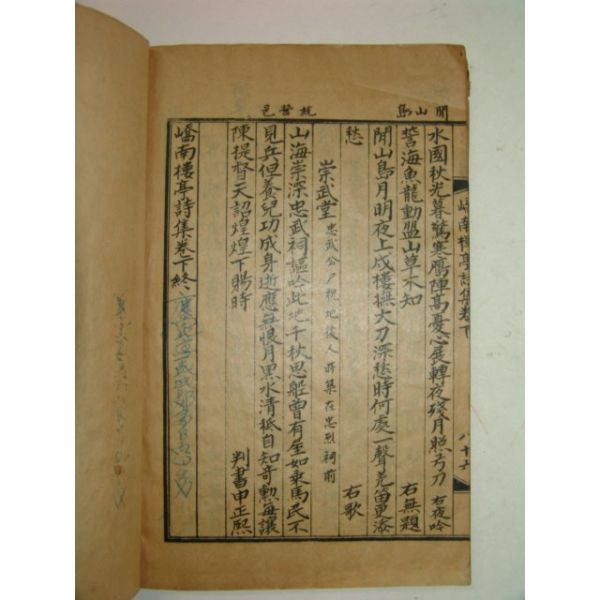 嶠南樓亭詩集卷下 八十六
閒山島
水國秋光暮驚寒鴈陣高憂心展轉夜殘月照弓刀 右夜吟
誓海魚龍動盟山草木知 右無題
閒山島月明夜上戍樓撫大刀深愁時何處一聲羌笛更添
愁 右歌
統營邑
崇武堂 忠武公尸祝地後人所築在忠烈祠前
山海崇深忠武祠謳吟此地千秋思船曾有全如乘馬民不
見兵但養兒功成身逝應無恨月黑水清祗自知奇勳每讓
陳提督天詔煌煌下賜時 判書申正熙
嶠南樓亭詩集卷下終